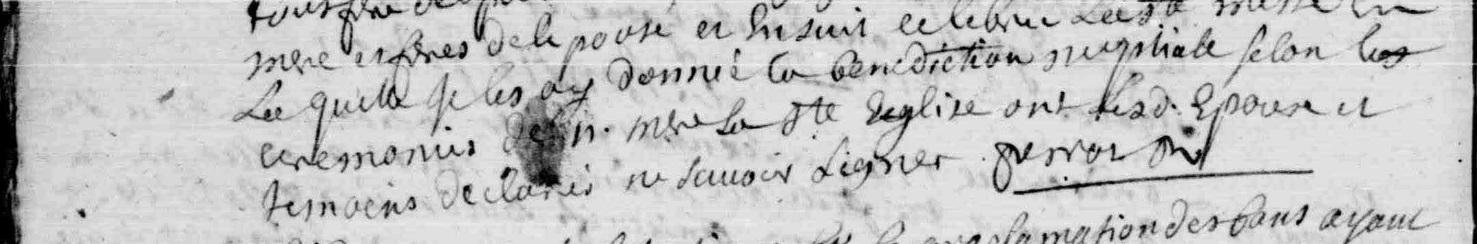 tous
mere et freres de lepouse et Ensuit celebré La Ste messe En
Laquelle je les ay donneé la benediction nuptiale selon les
ceremonies de n. mere la Ste Eglise ont lesd. Epoux et
temoins declarés ne scavoir signer
la proclamation des bans ayant